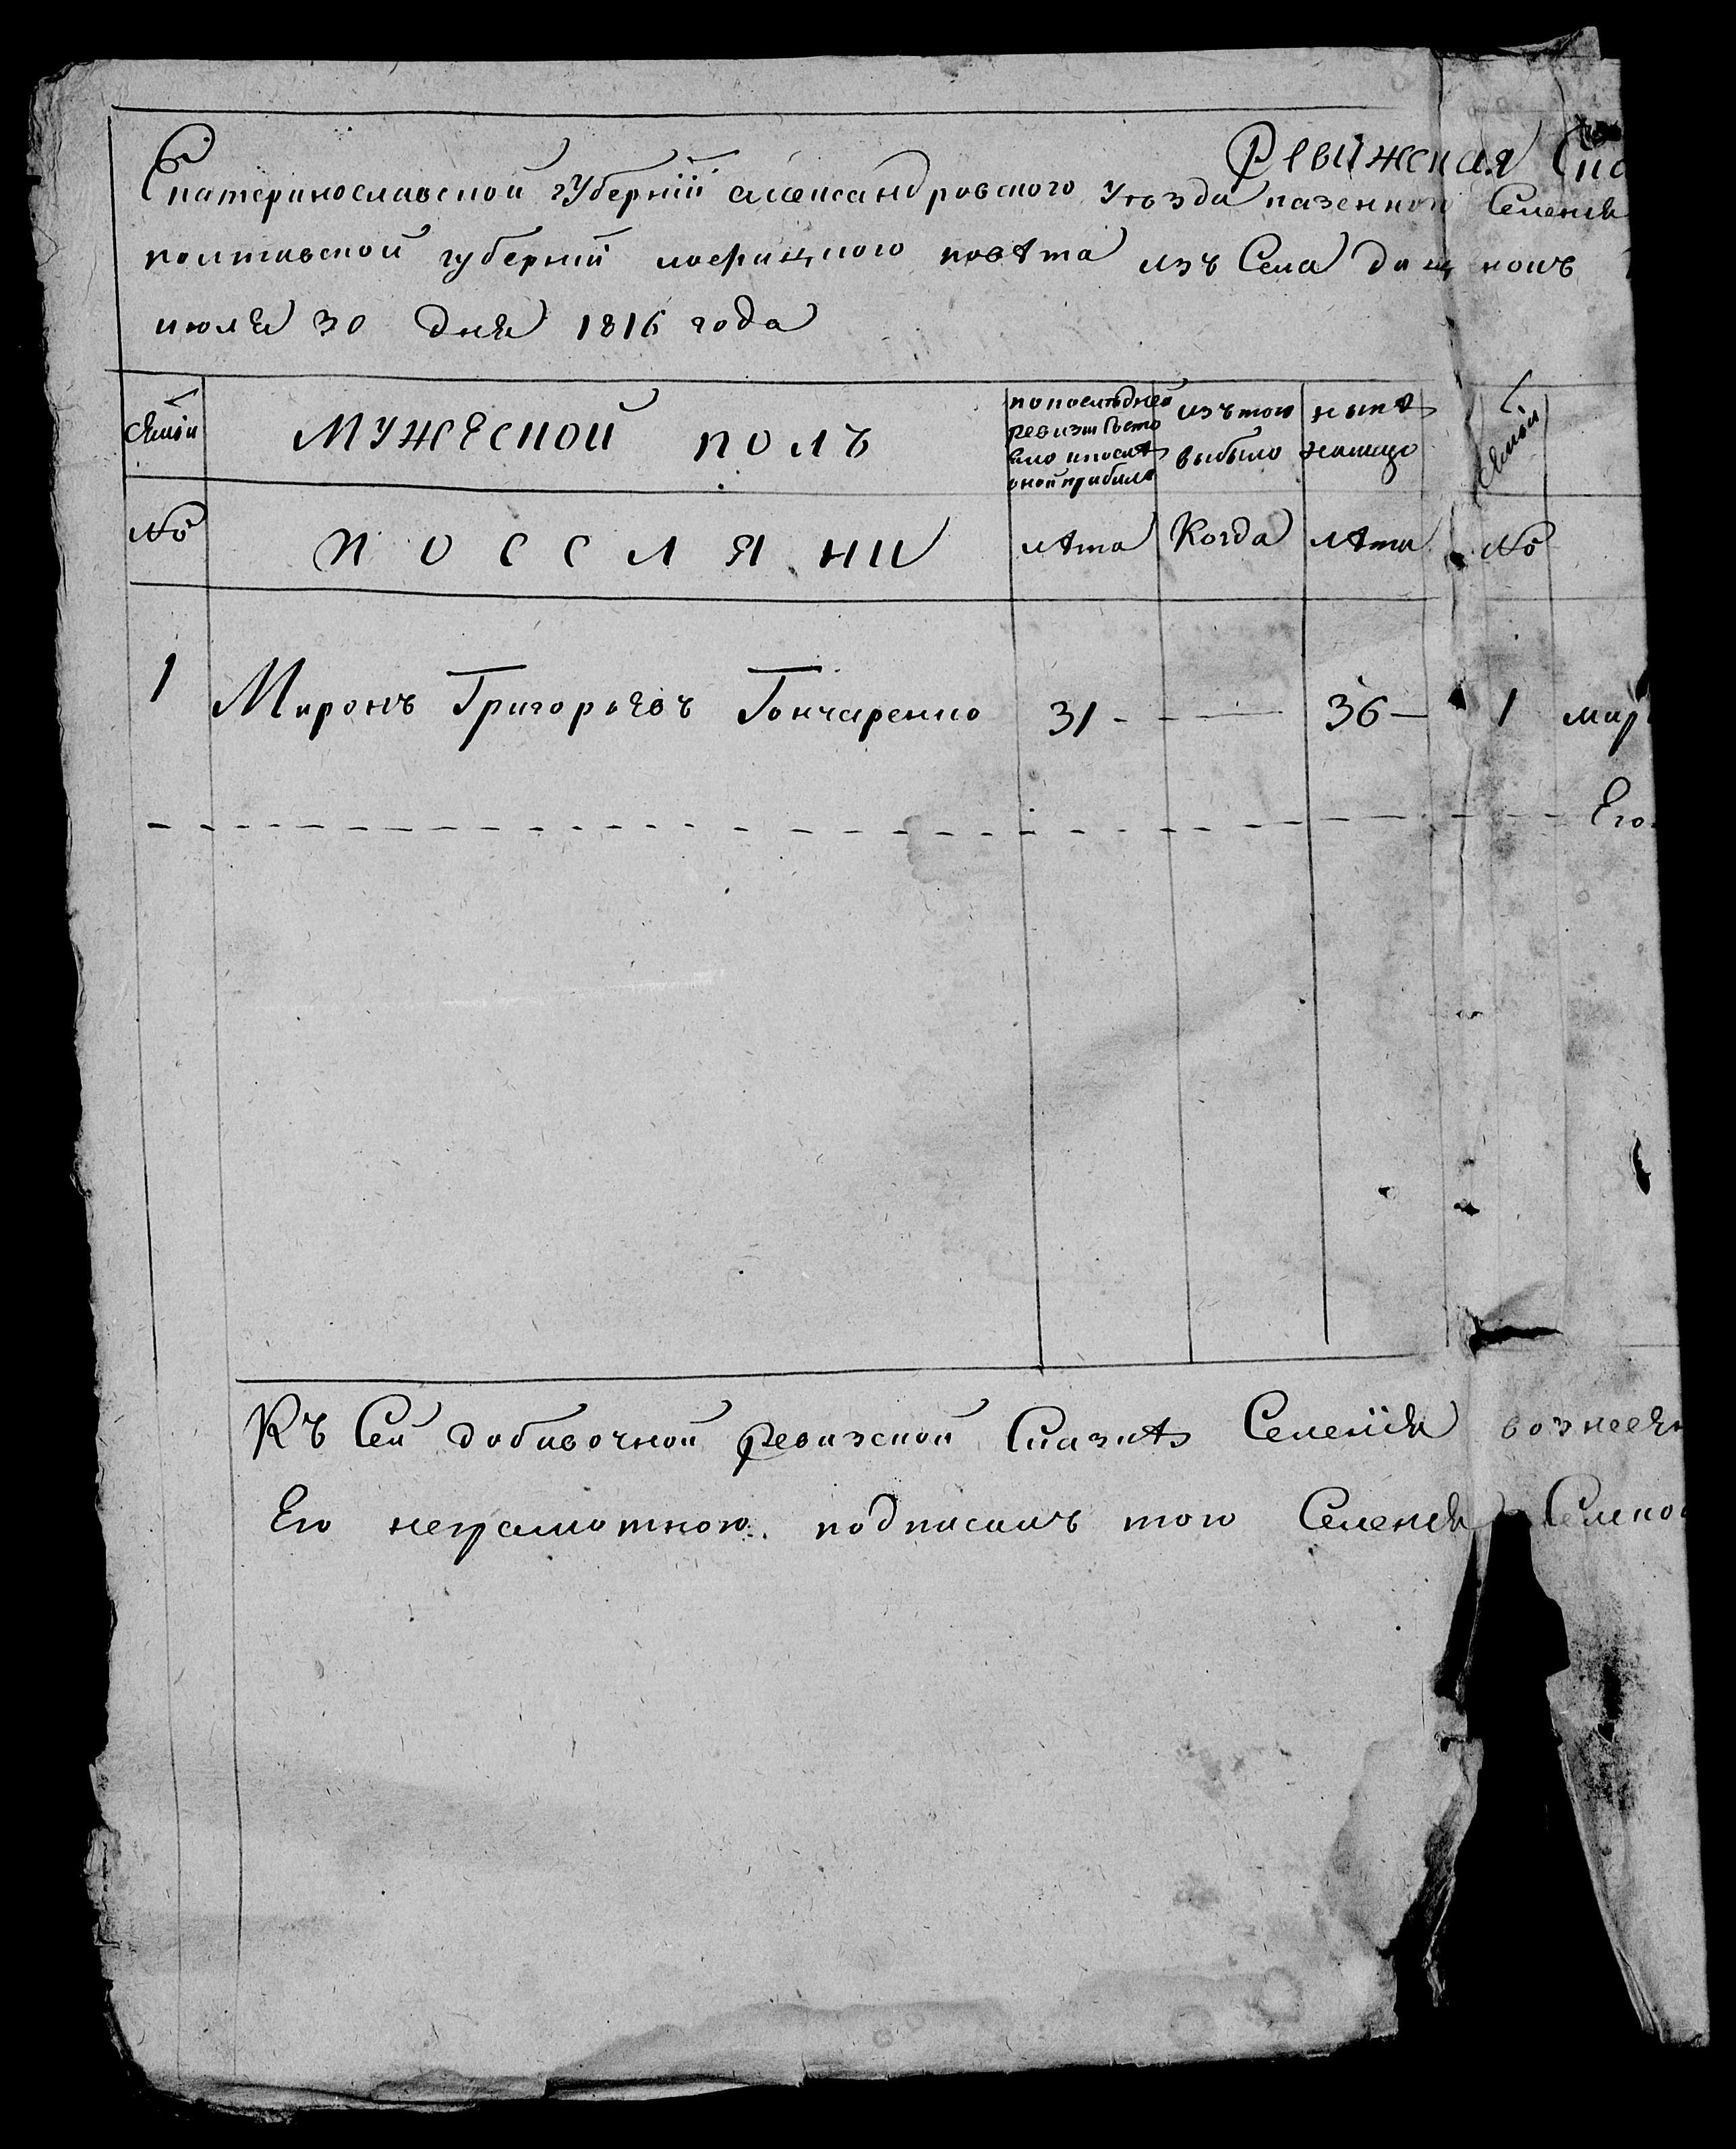 Ревижская Ска
Екатеринославской губернїй александровского уѣзда казенного Селенїя
полтавской губернїй лохвицкого повѣта изъ Села
июля 30 дня 1816 года
семьи МУЖЕСКОЙ ПОЛЪ по последней ревизи состояло и после оной прибыло изъ того выбыло нынѣ налицо семьи
№ ПОСЕЛЯНИ лѣта Когда лѣта №
1 Миронъ Григорьевъ Гончаренко 31 - - — 36 — 1 мир
Его
Къ Сей добавочной ревизской Сказкѣ Селенїя вознесен
Его неграмотного подписалъ того Селенїя Сельско